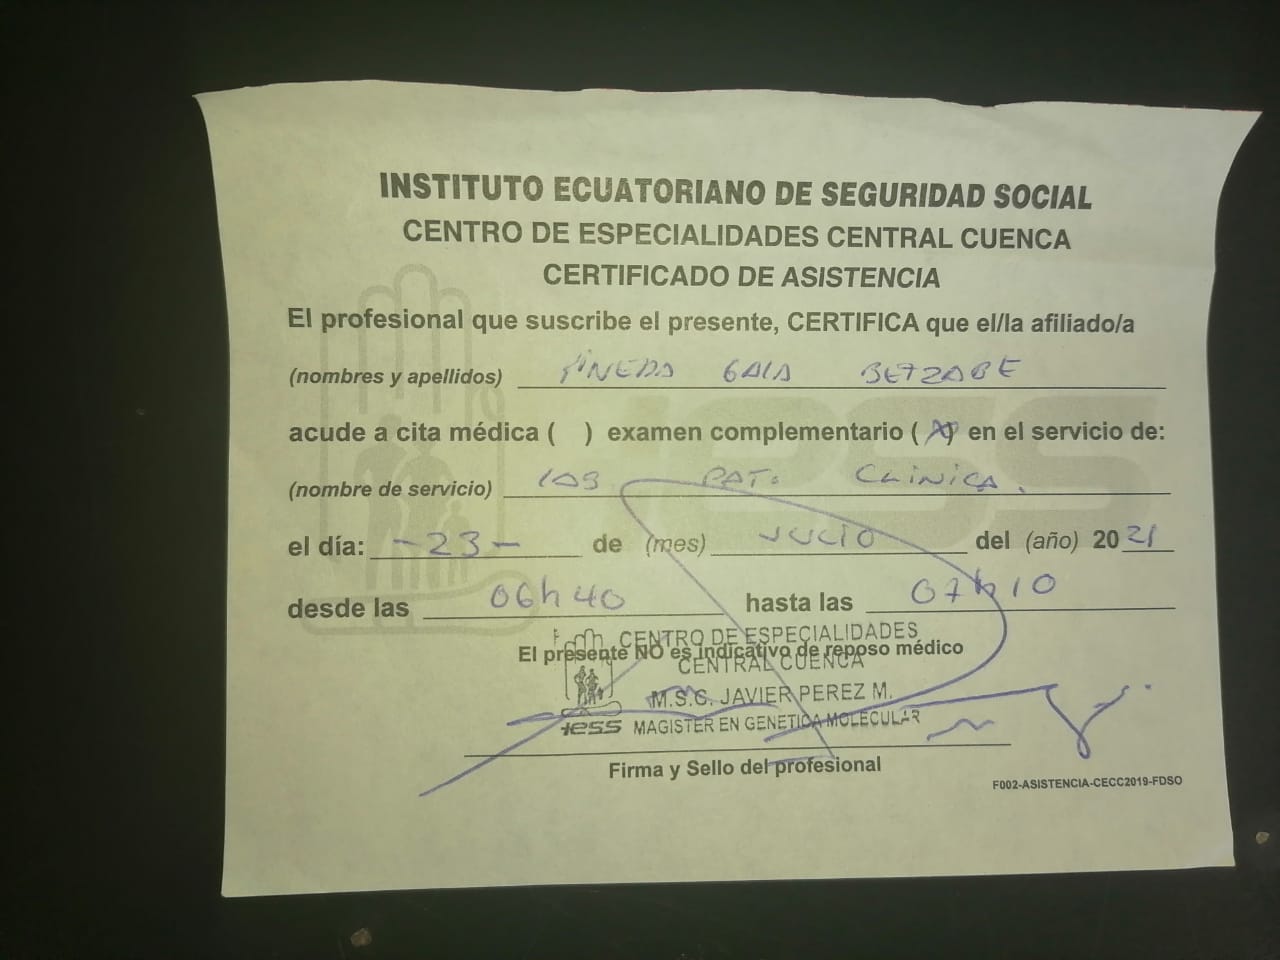 INSTITUTO ECUATORIANO DE SEGURIDAD SOCIAL
CENTRO DE ESPECIALIDADES CENTRAL CUENCA
CERTIFICADO DE ASISTENCIA
El profesional que suscribe el presente, CERTIFICA que el/la afiliado/a
(nombres y apellidos) PINEDA GALA BETZABE
acude a cita médica ( ) examen complementario (X) en el servicio de:
(nombre de servicio) LAB PAT. CLINICA.
el día: -23- de (mes) JULIO del (año) 2021
desde las 06h40 hasta las 07h10
CENTRO DE ESPECIALIDADES
El presente NO es indicativo de reposo médico
CENTRAL CUENCA
M.S.C. JAVIER PEREZ M.
iess MAGISTER EN GENETICA MOLECULAR
Firma y Sello del profesional
F002-ASISTENCIA-CECC2019-FDSO
iess